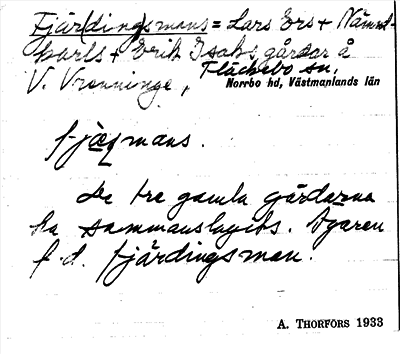 Fjärdingsmans = Lars Ers + Nämnd-
karls + Erik Isaks gårdar å
V. Vrenninge, Fläckebo sn.
Norrbo hd, Västmanlands län
fjælmans.
De tre gamla gårdarna
ha sammanslagits. Ägaren
f.d. fjärdingsman.
A. THORFORS 1933